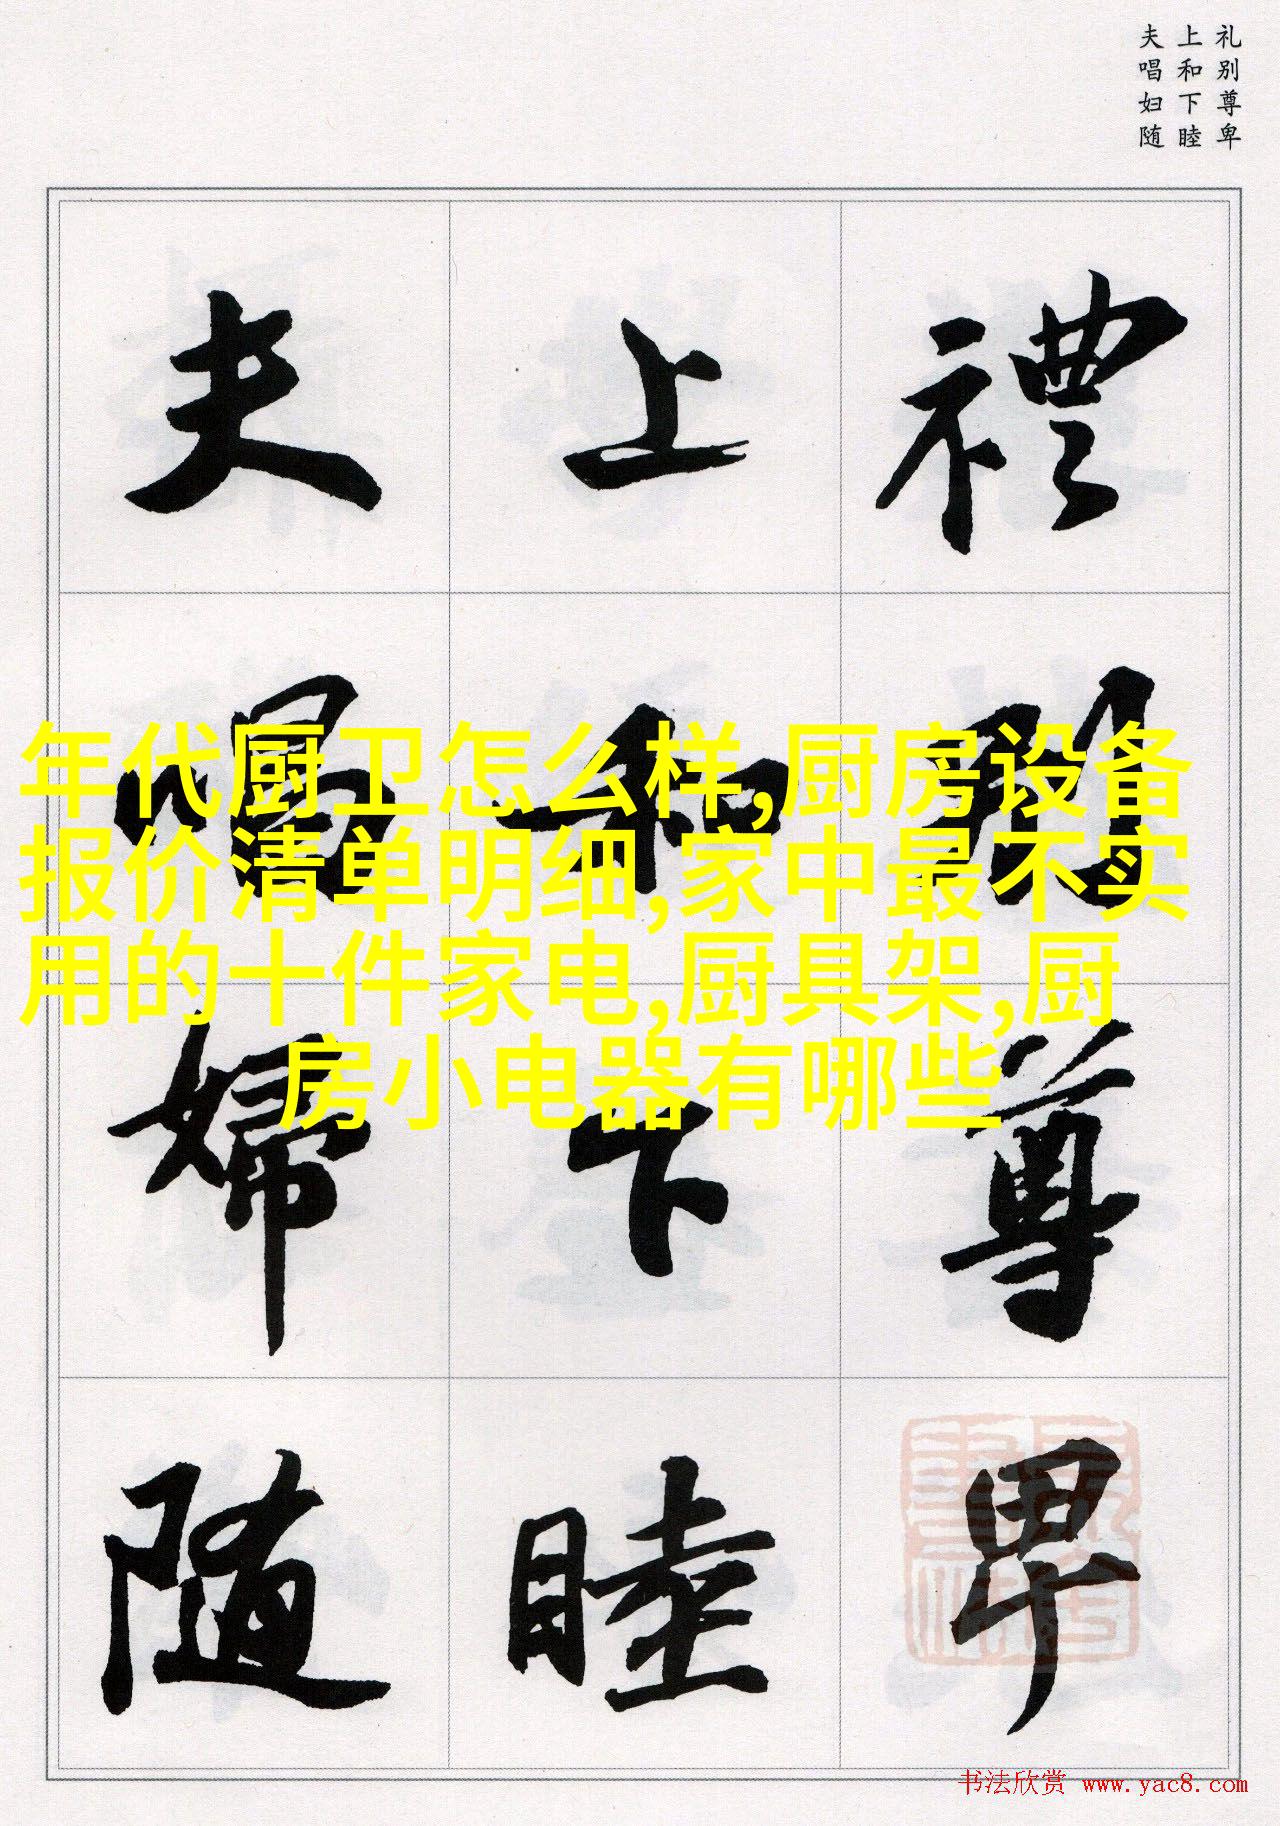 礼别尊卑
上和下睦
夫唱妇随
禮別尊卑
上和下睦
夫唱婦随
年代厨卫怎么样,厨房设备
报价清单明细,家中最不实
用的十件家电,厨具架,厨
房小电器有哪些
书法欣赏 www.yac8.com